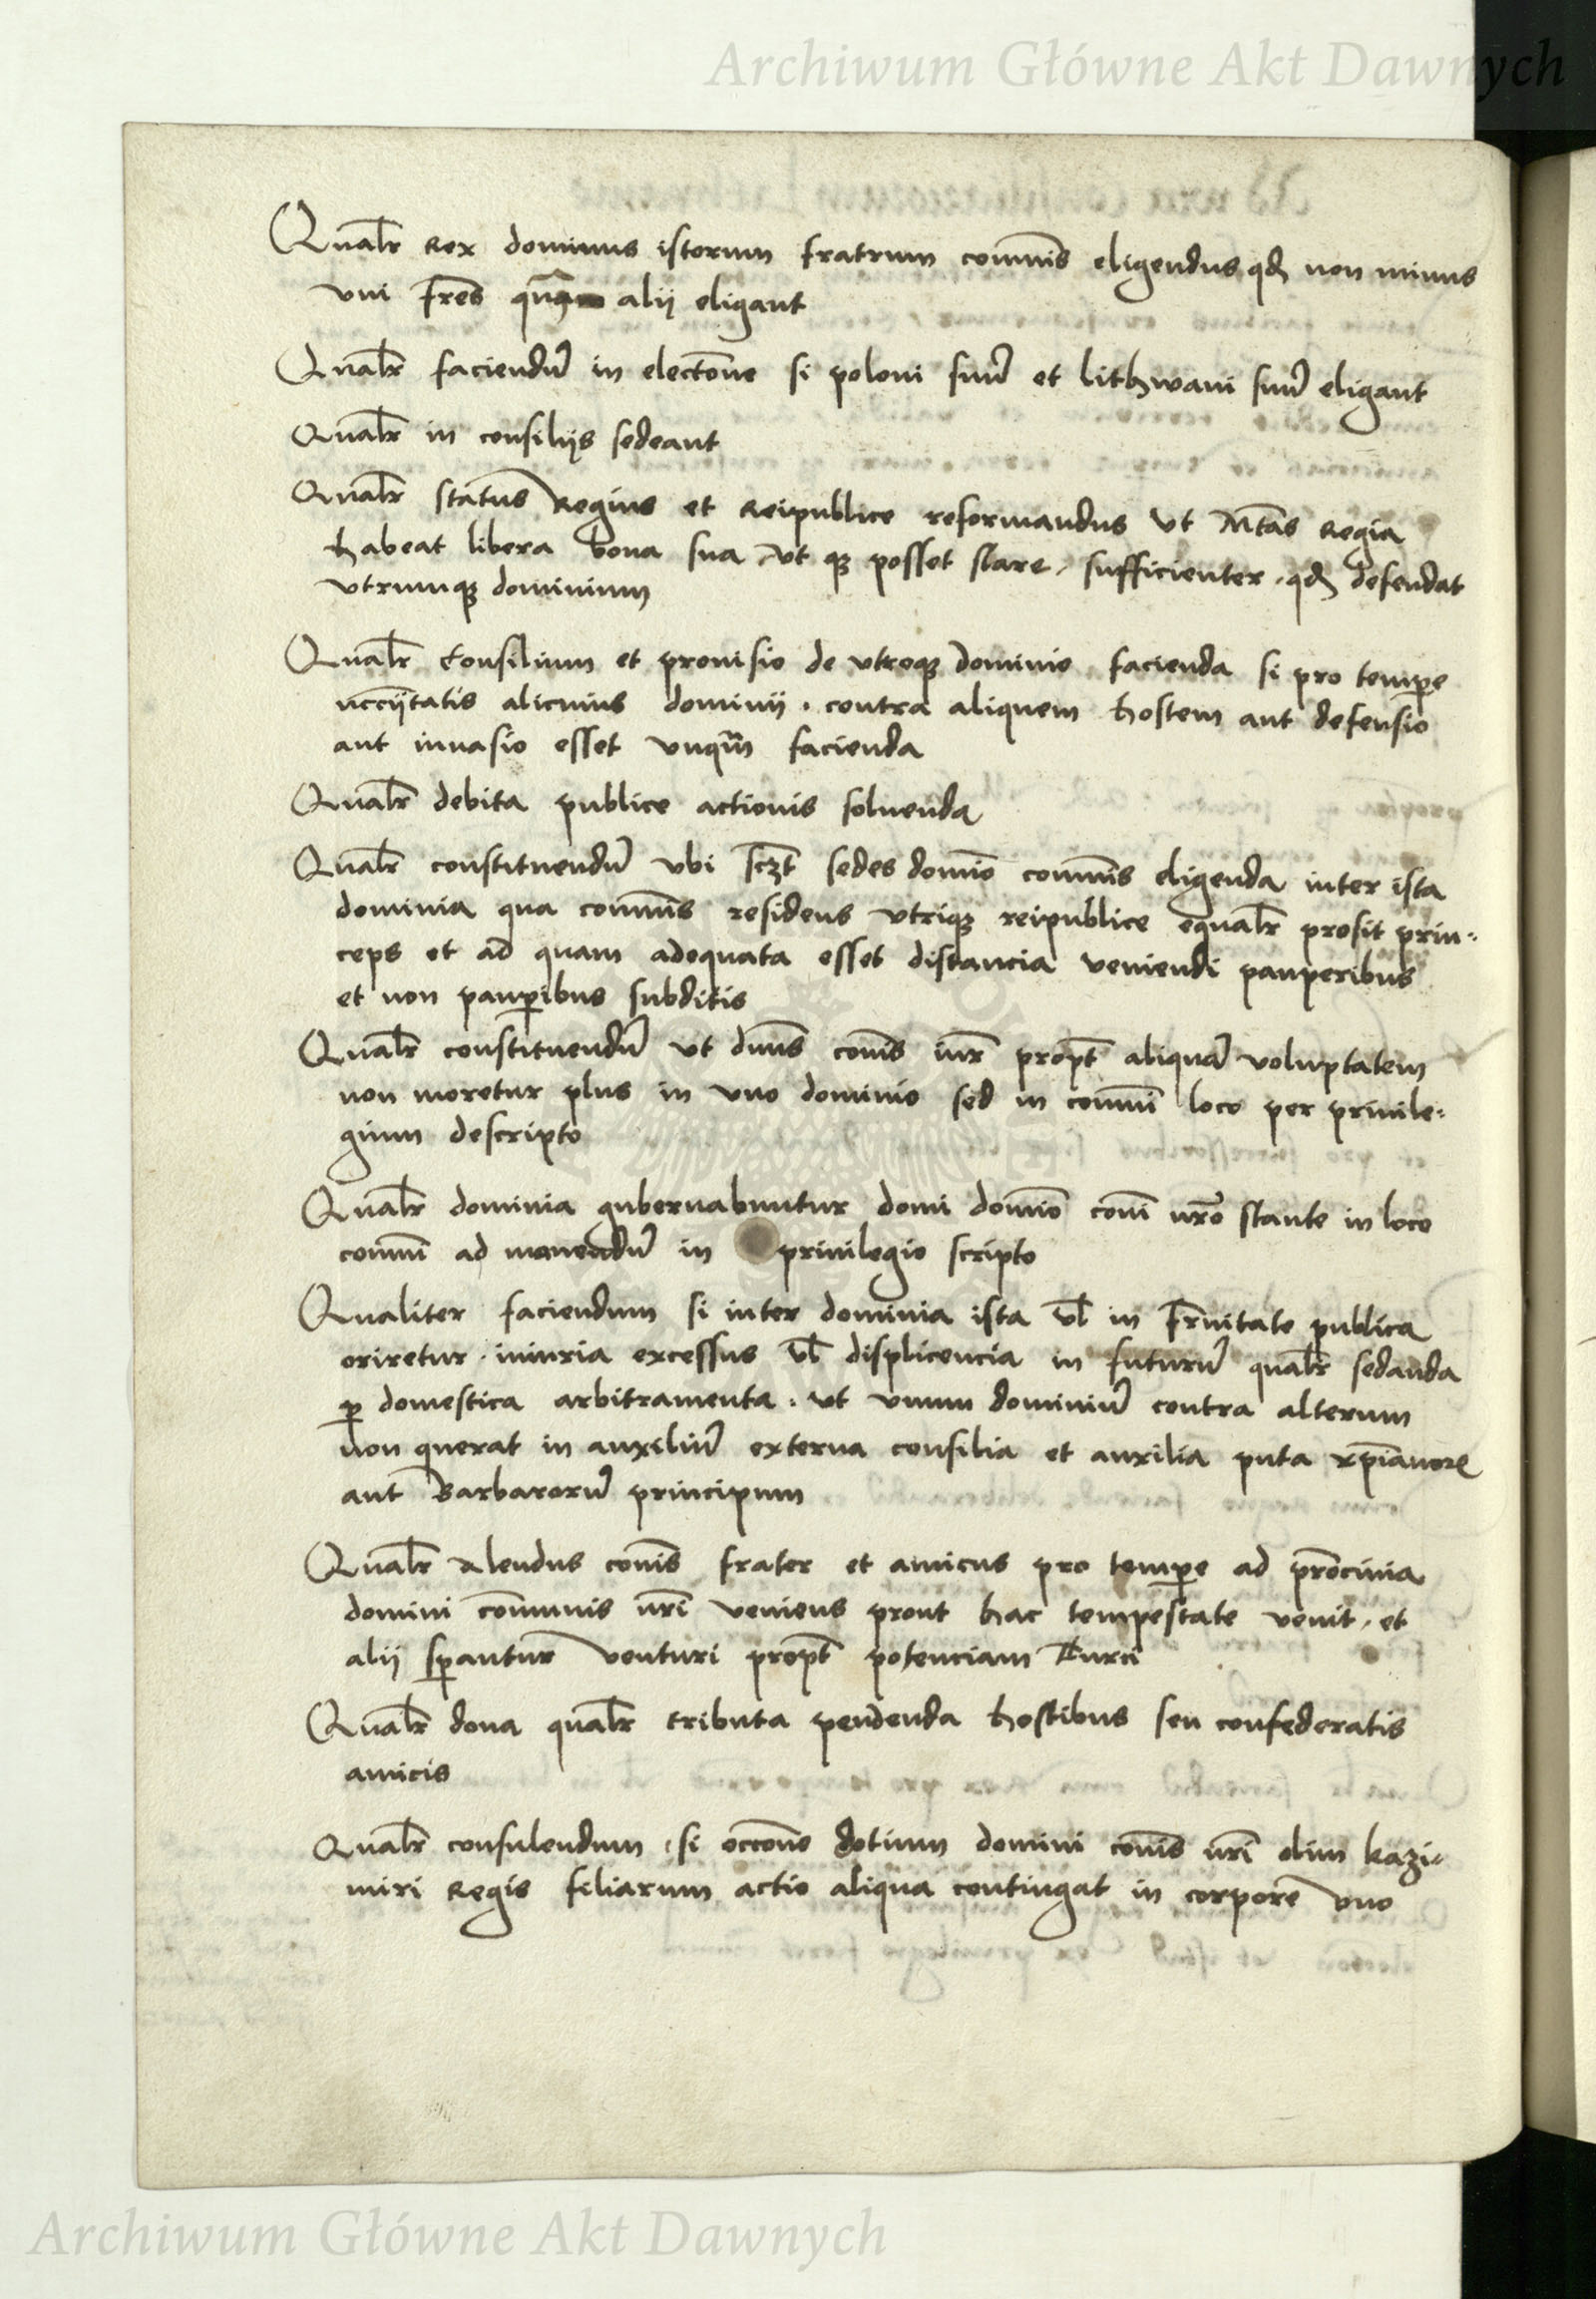 Archiwum Główne Akt Dawnych
Qualr Rex dominus istorum fratrum communis eligendus qd non minus
vni fres quam alii eligant
Qualr faciendu in electone si poloni suu et lithwani suu eligant
Qualr in consiliis sedeant
Qualr status Regius et Reipublice reformandus vt Mtas Regia
habeat libera bona sua vt posset stare, sufficienter, qd defendat
vtrumque dominium
Qualr consilium et prouisio de vtroque dominio facienda si pro tempe
necciitatis alicuius dominii contra aliquem hostem aut defensio
aut inuasio esset vnqm facienda
Qualr debita publice actionis soluenda
Qualr constituendu vbi sczt sedes domio commnis eligenda inter ista
dominia qua commnis residens vtrique reipublice equalr prosit prin-
ceps et ad quam adequata esset distancia veniendi pauperibus
et non paupibus subditis
Qualr constituendu vt dnus comis nr propt aliqua voluptatem
non moretur plus in vno dominio sed in commi loco per priuile-
gium descripto
Qualr dominia gubernabuntur domi domio comi nro stante in loco
commi ad manendu in priuilegio scripto
Qualiter faciendum si inter dominia ista vl in frnitate publica
oriretur iniuria excessus vl displicencia in futuru qualr sedanda
p domestica arbitramenta. vt vnum dominiu contra alterum
non querat in auxiliu externa consilia et auxilia puta xpianor
aut Barbaroru principum
Qualr alendus comis frater et amicus pro tempe ad procinia
domini communis nri veniens prout hac tempestate venit, et
alii spantur venturi propt potenciam Turci
Qualr dona qualr tributa pendenda hostibus seu confederatis
amicis
Qualr consulendum, si occone dotium domini comis nri olim kazi-
miri Regis filiarum actio aliqua contingat in corpore vno
Archiwum Główne Akt Dawnych